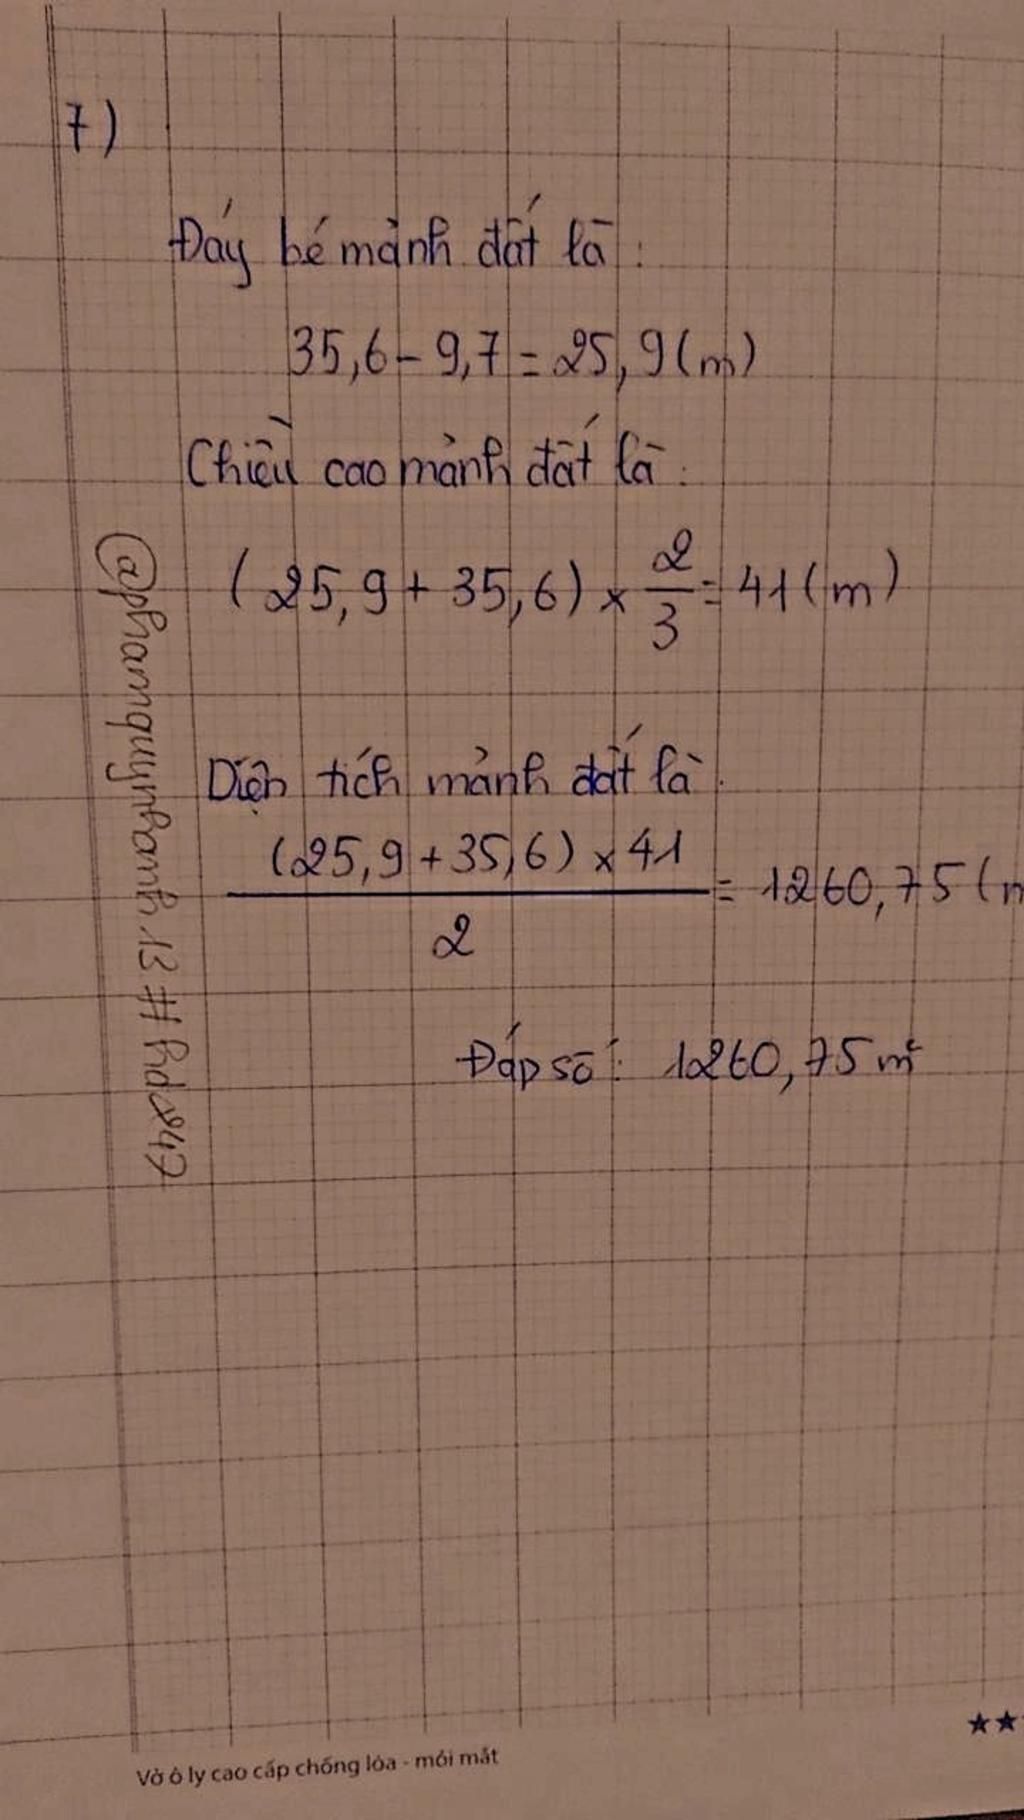 7)
Đáy bé mảnh đất là:
35,6 - 9,7 = 25,9 (m)
Chiều cao mảnh đất là:
(25,9 + 35,6) × 2/3 = 41 (m)
Diện tích mảnh đất là:
(25,9 + 35,6) × 41 / 2 = 1260,75 (m
Đáp số: 1260,75 m²
@phamquynhanh.13#hd247
Vở ô ly cao cấp chống lóa - mỏi mắt